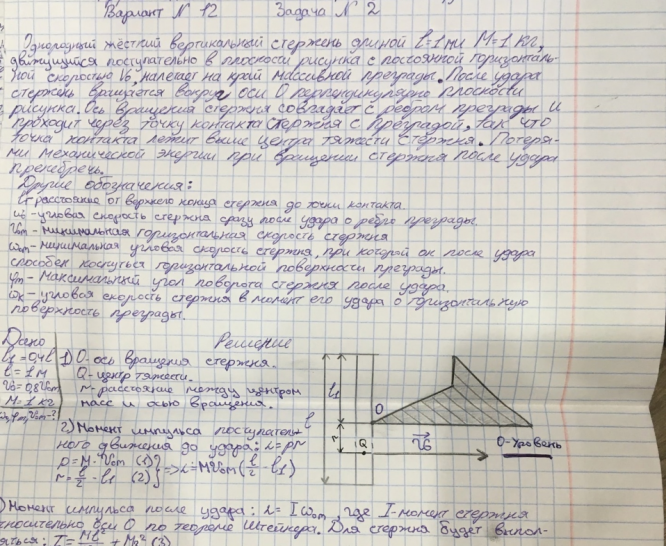 Вариант N 12 Задача N 2
Однородный жёсткий вертикальный стержень длиной l=1м и M=1 кг,
движущийся поступательно в плоскости рисунка с постоянной горизонталь-
ной скоростью V₀, налетает на край массивной преграды. После удара
стержень вращается вокруг оси O перпендикулярно плоскости
рисунка. Ось вращения стержня совпадает с ребром преграды и
проходит через точку контакта стержня с преградой, так что
точка контакта лежит выше центра тяжести стержня. Потеря-
ми механической энергии при вращении стержня после удара
пренебречь.
Другие обозначения:
l₁-расстояние от верхнего конца стержня до точки контакта.
ω₀-угловая скорость стержня сразу после удара о ребро преграды.
V₀m-минимальная горизонтальная скорость стержня
ω₀m-минимальная угловая скорость стержня, при которой он после удара
способен коснуться горизонтальной поверхности преграды.
φm-максимальный угол поворота стержня после удара.
ωк-угловая скорость стержня в момент его удара о горизонтальную
поверхность преграды.
Дано
l₁=0,4l
l=1м
V₀=0,8V₀m
M=1 кг
φm, V₀m-?
Решение
1) O-ось вращения стержня.
Q-центр тяжести.
r-расстояние между центром
масс и осью вращения.
2) Момент импульса поступатель-
ного движения до удара: L=pr
p=M·V₀m (1)
r=l/2-l₁ (2) } => L=MV₀m(l/2-l₁)
l₁
l
O
r
Q
V₀
0-уровень
) Момент импульса после удара: L=Iω₀m, где I-момент стержня
относительно оси O по теореме Штейнера. Для стержня будет выпол-
няться: I=Ml²/12+Mr² (3)